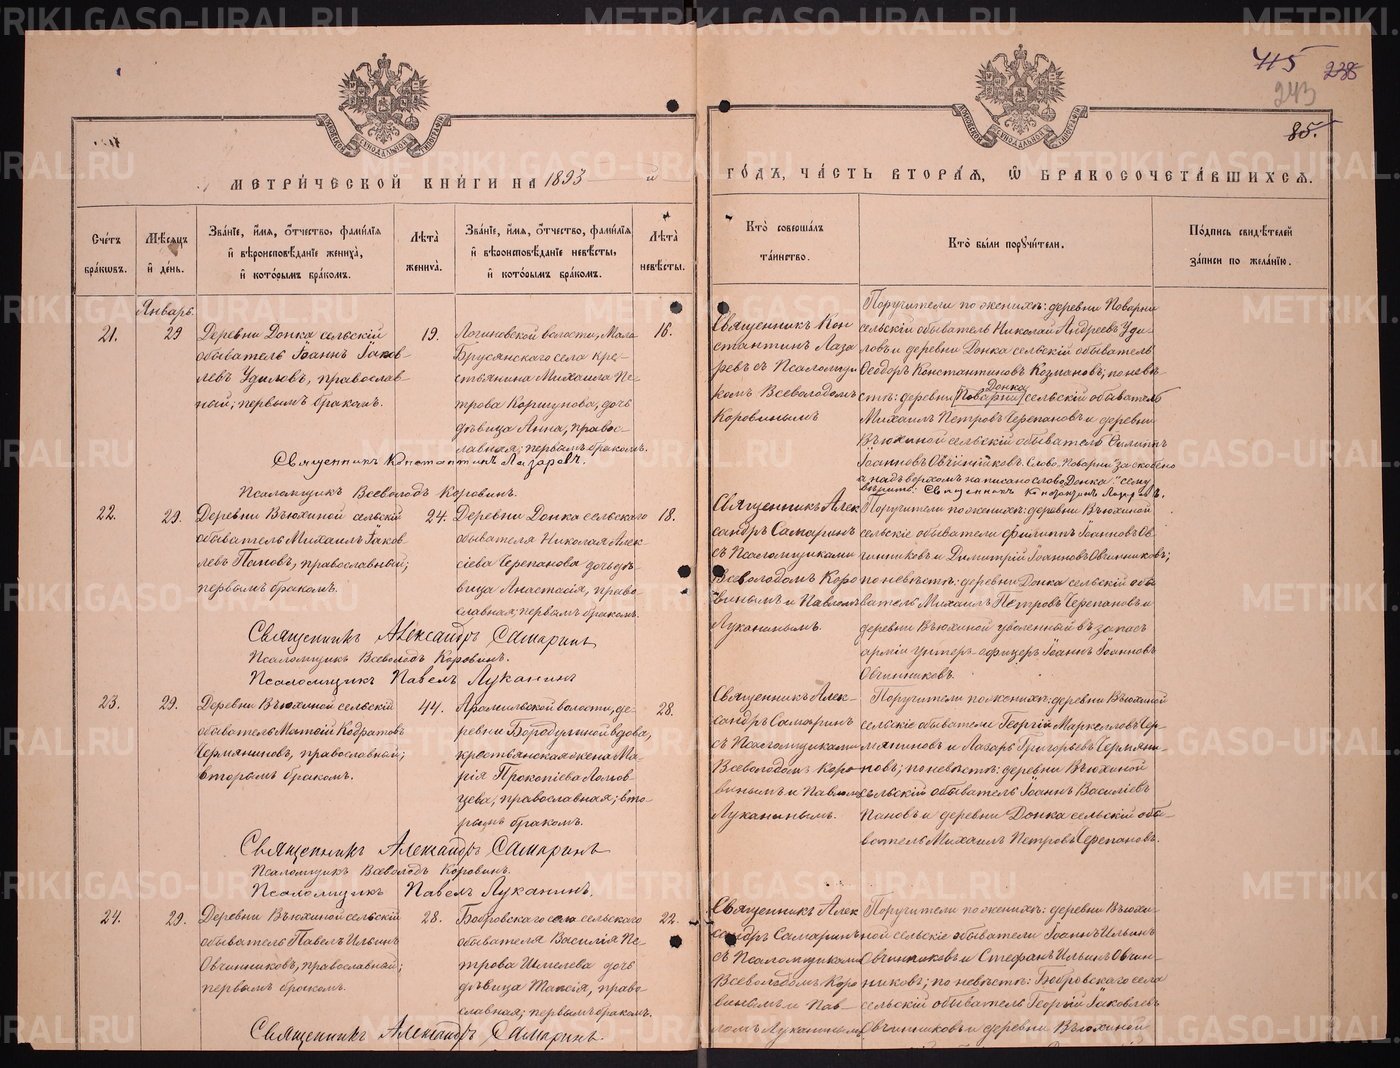 415 238
243
85.
МЕТРИЧЕСКОЙ КНИГИ НА 1893 й
ГОДЪ, ЧАСТЬ ВТОРАЯ, Ѡ БРАКОСОЧЕТАВШИХСЯ.
Счетъ браковъ.
Мѣсяцъ и день.
Званіе, имя, отчество, фамилія
и вѣроисповѣданіе жениха,
и которымъ бракомъ.
Лѣта жениха.
Званіе, имя, отчество, фамилія
и вѣроисповѣданіе невѣсты,
и которымъ бракомъ.
Лѣта невѣсты.
Кто совершалъ
таинство.
Кто были поручители.
Подпись свидѣтелей
записи по желанію.
Январь.
21.
29
Деревни Донка сельскій
обыватель Іоаннъ Іаков-
левъ Удиловъ, православ-
ный; первымъ бракомъ.
19.
Логиновской волости, Мало
Брусянскаго села кре-
стьянина Михаила Пе-
трова Коршунова, дочь
дѣвица Анна, правос-
лавная; первымъ бракомъ.
16.
Священникъ Кон
стантинъ Лаза
ревъ съ Псаломщи
комъ Всеволодомъ
Коровинымъ
Поручители по женихѣ: деревни Поварни
сельскій обыватель Николай Андреевъ Уди-
ловъ и деревни Донка сельскій обыватель
Ѳеодоръ Константиновъ Козмановъ; по невѣ-
Донка
стѣ: деревни (Поварни) сельскій обыватель
Михаилъ Петровъ Черепановъ и деревни
Вьюхиной сельскій обыватель Филиппъ
Іоанновъ Овчинниковъ. Слово "Поварни" за скобою
а надъ верхомъ написано слово "Донка" сему
вѣрить: Священникъ Константинъ Лазаревъ.
Священникъ Константинъ Лазаревъ.
Псаломщикъ Всеволодъ Коровинъ.
22.
29.
Деревни Вьюхиной сельскій
обыватель Михаилъ Іаков
левъ Пановъ, православный;
первымъ бракомъ.
24.
Деревни Донка сельскаго
обывателя Николая Алек-
сіева Черепанова дочь дѣ-
вица Анастасія, право-
славная; первымъ бракомъ.
18.
Священникъ Алек
сандръ Самаринъ
съ Псаломщиками
Всеволодомъ Коро
винымъ и Павломъ
Луканинымъ.
Поручители по женихѣ: деревни Вьюхиной
сельскіе обыватели Филиппъ Іоанновъ Ов-
чинниковъ и Димитрій Іоанновъ Овчинниковъ;
по невѣстѣ: деревни Донка сельскій обы-
ватель Михаилъ Петровъ Черепановъ и
деревни Вьюхиной уволенный въ запасъ
арміи унтеръ-офицеръ Іоаннъ Іоанновъ
Овчинниковъ.
Священникъ Александръ Самаринъ
Псаломщикъ Всеволодъ Коровинъ.
Псаломщикъ Павелъ Луканинъ
23.
29.
Деревни Вьюхиной сельскій
обыватель Матѳій Кодратовъ
Чермяниновъ, православный;
вторымъ бракомъ.
44.
Арамильской волости, де-
ревни Бородулиной вдова,
крестьянская жена Ма-
рія Прокопіева Ломов-
цева; православная; вто-
рымъ бракомъ.
28.
Священникъ Алек-
сандръ Самаринъ
съ Псаломщиками
Всеволодомъ Коро-
винымъ и Павломъ
Луканинымъ.
Поручители по женихѣ: деревни Вьюхиной
сельскіе обыватели Георгій Маркелловъ Чер-
мяниновъ и Лазарь Григорьевъ Чермяни-
новъ; по невѣстѣ: деревни Вьюхиной
сельскій обыватель Іоаннъ Василіевъ
Пановъ и деревни Донка сельскій обы-
ватель Михаилъ Петровъ Черепановъ.
Священникъ Александръ Самаринъ
Псаломщикъ Всеволодъ Коровинъ.
Псаломщикъ Павелъ Луканинъ.
24.
29.
Деревни Вьюхиной сельскій
обыватель Павелъ Ильинъ
Овчинниковъ, православный;
первымъ бракомъ.
28.
Бобровскаго села сельскаго
обывателя Василія Пе-
трова Шмелева дочь
дѣвица Таисія, право-
славная; первымъ бракомъ.
22.
Священникъ Алек
сандръ Самаринъ
съ Псаломщиками
Всеволодомъ Коро
винымъ и Пав-
ломъ Луканинымъ
Поручители по женихѣ: деревни Вьюхи-
ной сельскіе обыватели Іоаннъ Ильинъ
Овчинниковъ и Стефанъ Ильинъ Овчин-
никовъ; по невѣстѣ: Бобровскаго села
сельскій обыватель Георгій Іаковлевъ
Овчинниковъ и деревни Вьюхиной
Священникъ Александръ Самаринъ.